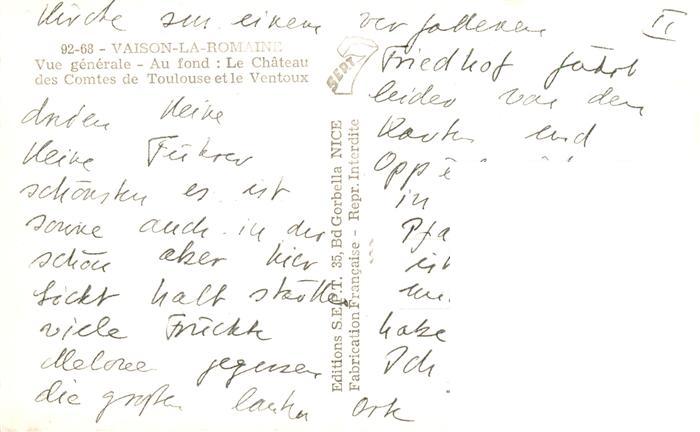 Kirche aus einem verfallenen II
92-68 - VAISON-LA-ROMAINE
Vue générale - Au fond : Le Château
des Comtes de Toulouse et le Ventoux
SEPT
Friedhof führt
leider von den
keine
Karten und
keine Führer
Opp
schönsten es ist
in
sonne auch in der
Pfa
schön aber hier
ist
Licht halt
viele Früchte
habe
Melonen gegessen
Ich
die großen lauten Orte
Editions S.E.P.T. 35, Bd Gorbella NICE
Fabrication Française - Repr. Interdite